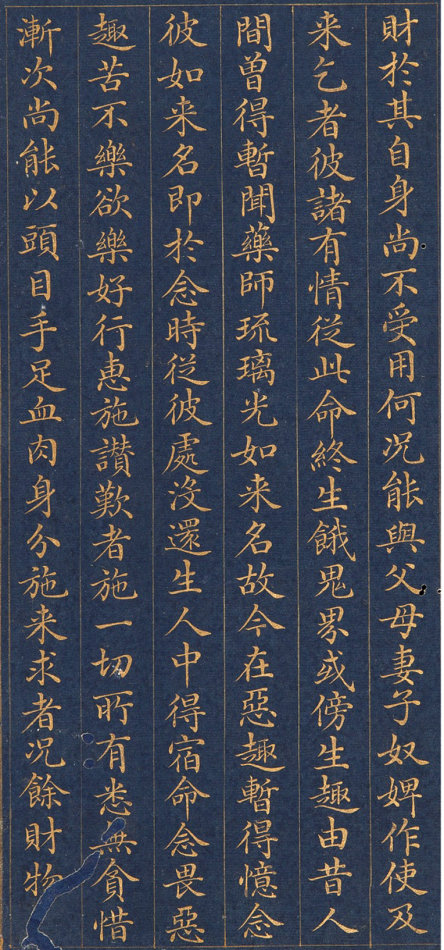 財於其自身尚不受用何況能與父母妻子奴婢作使及
来乞者彼諸有情從此命終生餓鬼界或傍生趣由昔人
間曾得暫聞藥師琉璃光如来名故今在惡趣暫得憶念
彼如来名即於念時從彼處沒還生人中得宿命念畏惡
趣苦不樂欲樂好行惠施讃歎者施一切所有悉無貪惜
漸次尚能以頭目手足血肉身分施来求者況餘財物